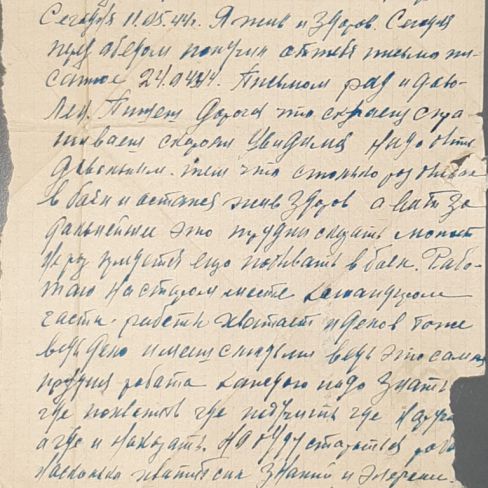 Сегодня 11.05.44г. Я жив и здоров. Сегодня
пред обедом получил от тебя письмо пи-
санное 24.04.44. Письмом рад и дово-
лен. Пишеш дорогая что скучаеш спра-
шиваеш скоро ли увидимся надо быть
довольным тем что столько раз бывал
в боях и остался жив здоров а
дальнейшее это трудно сказать может
не раз придется ещо побывать в боях. Рабо-
таю на старом месте командиром
части. работы хватает и денов тоже
ведь дело имееш с людьми ведь это самая
трудная работа каждого надо знать
где похвалить где поругать где
а где и наказать. Но буду стараться
насколько хватит сил знаний и энергии.